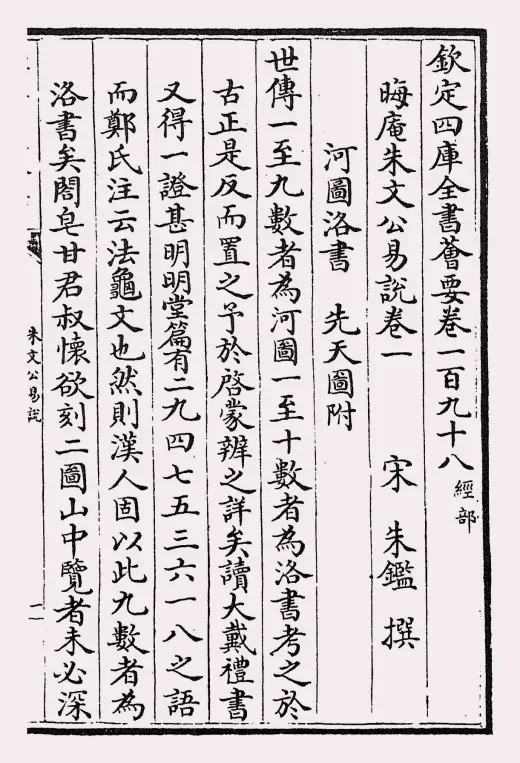 欽定四庫全書薈要卷一百九十八 經部
晦庵朱文公易說卷一 宋 朱鑑 撰
河圖洛書 先天圖附
世傳一至九數者為河圖一至十數者為洛書考之於
古正是反而置之予於啓蒙辨之詳矣讀大戴禮書
又得一證甚明明堂篇有二九四七五三六一八之語
而鄭氏注云法龜文也然則漢人固以此九數者為
洛書矣閤皂甘君叔懷欲刻二圖山中覽者未必深
朱文公易說
一